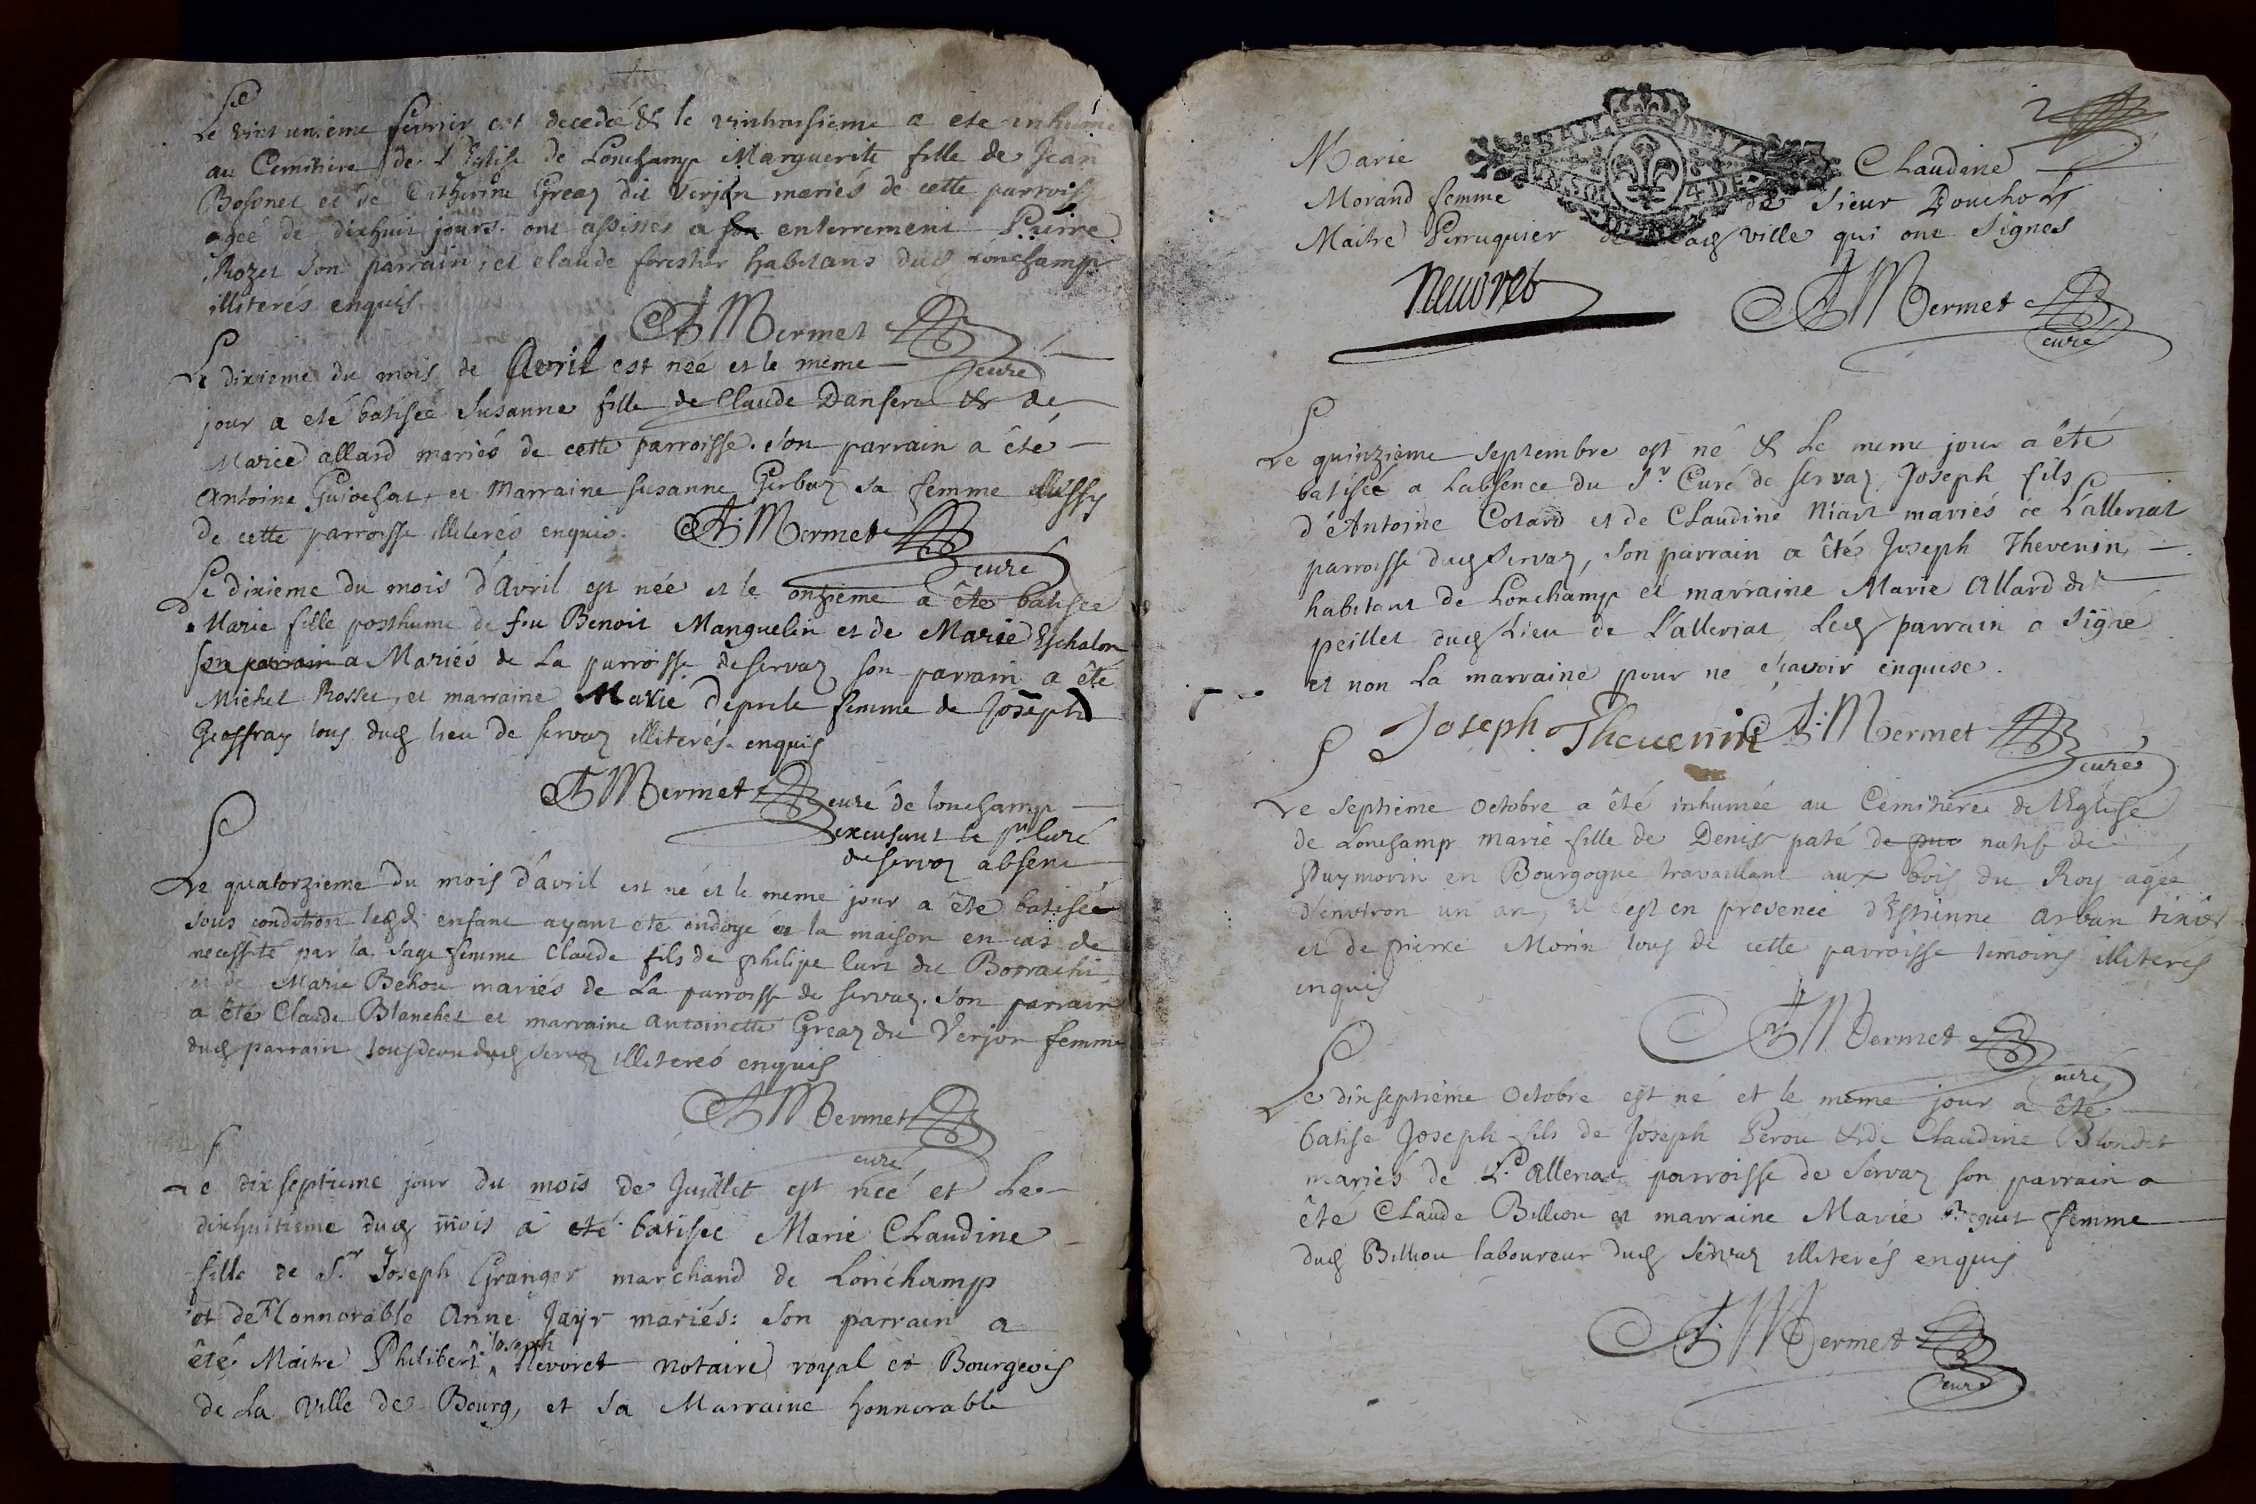 Le vint unieme fevrier est decedée & le vintroisieme a ete inhumé
au Cemitiere de L'Eglise de Lonchamp Marguerite fille de Jean
Bosonet et de Catherine Greaz dit Verjon mariés de cette parroisse
agée de dixhuit jours. ont assistés a son enterrement Pierre
Rozet son parrain, et claude forestier habitans dud Lonchamp
illiterés enquis
A Mermet
curé
Le dixieme du mois de Avril est née et le meme
jour a eté batisée Susanne fille de Claude Danfert & de
Marie allard mariés de cette parroisse. son parrain a êté
Antoine Guiochat, et Marraine susanne Gerbaz sa femme aussy
de cette parroisse illiterés enquis. A. Mermet
curé
Le dixieme du mois d'Avril est née et le onzieme a ête batisée
Marie fille posthume de feu Benoit Manguelin et de Marie Eschalon
son parrain a Mariés de La parroisse de servaz son parrain a ête
Michel Rosset, et marraine Marie déprele femme de Joseph
Geoffray tous dud lieu de servaz illiterés enquis
A Mermet curé de lonchamp
excusant le sr Curé
de servaz absent
Le quatorzieme du mois d'avril est né et le meme jour a ête batisée
sous condition led enfant ayant eté ondoyé a la maison en cas de
necessité par la sage femme Claude fils de philipe Curt dit Borrachi
et de Marie Behou mariés de La parroisse de servaz. son parrain
a êté Claude Blanchet et marraine antoinette Greaz du Verjon femme
dud parrain tous deux dud servaz illiterés enquis
A Mermet
curé
Le dix septieme jour du mois de Juillet est née et Le
dixhuitieme dud mois a eté batisée Marie Claudine
fille de Sr. Joseph Granger marchand de Lonchamp
et de Honnorable Anne Jayr mariés: son parrain a
êté Maitre Philibert Joseph Nevoret notaire royal et Bourgeois
de La Ville de Bourg, et sa Marraine honnorable
2
Marie Claudine
Morand femme de Sieur Bouchot
Maitre Perruquier de lad ville qui ont signés
Neuvret A Mermet
curé
Le quinzieme septembre est né & Le meme jour a êté
batisée a Labsence du Sr. Curé de servaz Joseph fils
d'Antoine Cotard et de Claudine Niart mariés de Lalleriat
parroisse dud servaz, son parrain a êtés Joseph Thevenin
habitant de Lonchamp et marraine Marie Allard dit
peillet dud Lieu de L'alleriat, Led parrain a signé
et non La marraine pour ne sçavoir enquise.
Joseph Thevenin A. Mermet
curé
Le septiéme octobre a été inhumée au Cémitiere de l'Eglise
de Lonchamp marie fille de Denis paté de puo natif de
Puymorin en Bourgogne travaillant aux bois du Roy agée
d'environ un an, en presence d'Estienne arban tixier
et de pierre Morin tous de cette parroisse temoins illiterés
enquis
A Mermet
curé
Le dixseptiéme octobre est né et le meme jour a êté
batise Joseph fils de Joseph Perou & de Claudine Blondet
mariés de L'alleriat parroisse de Servaz son parrain a
êté Claude Billiou et marraine Marie Beguet femme
dud Billiou laboureur dud servaz illiterés enquis
A. Mermet
curé